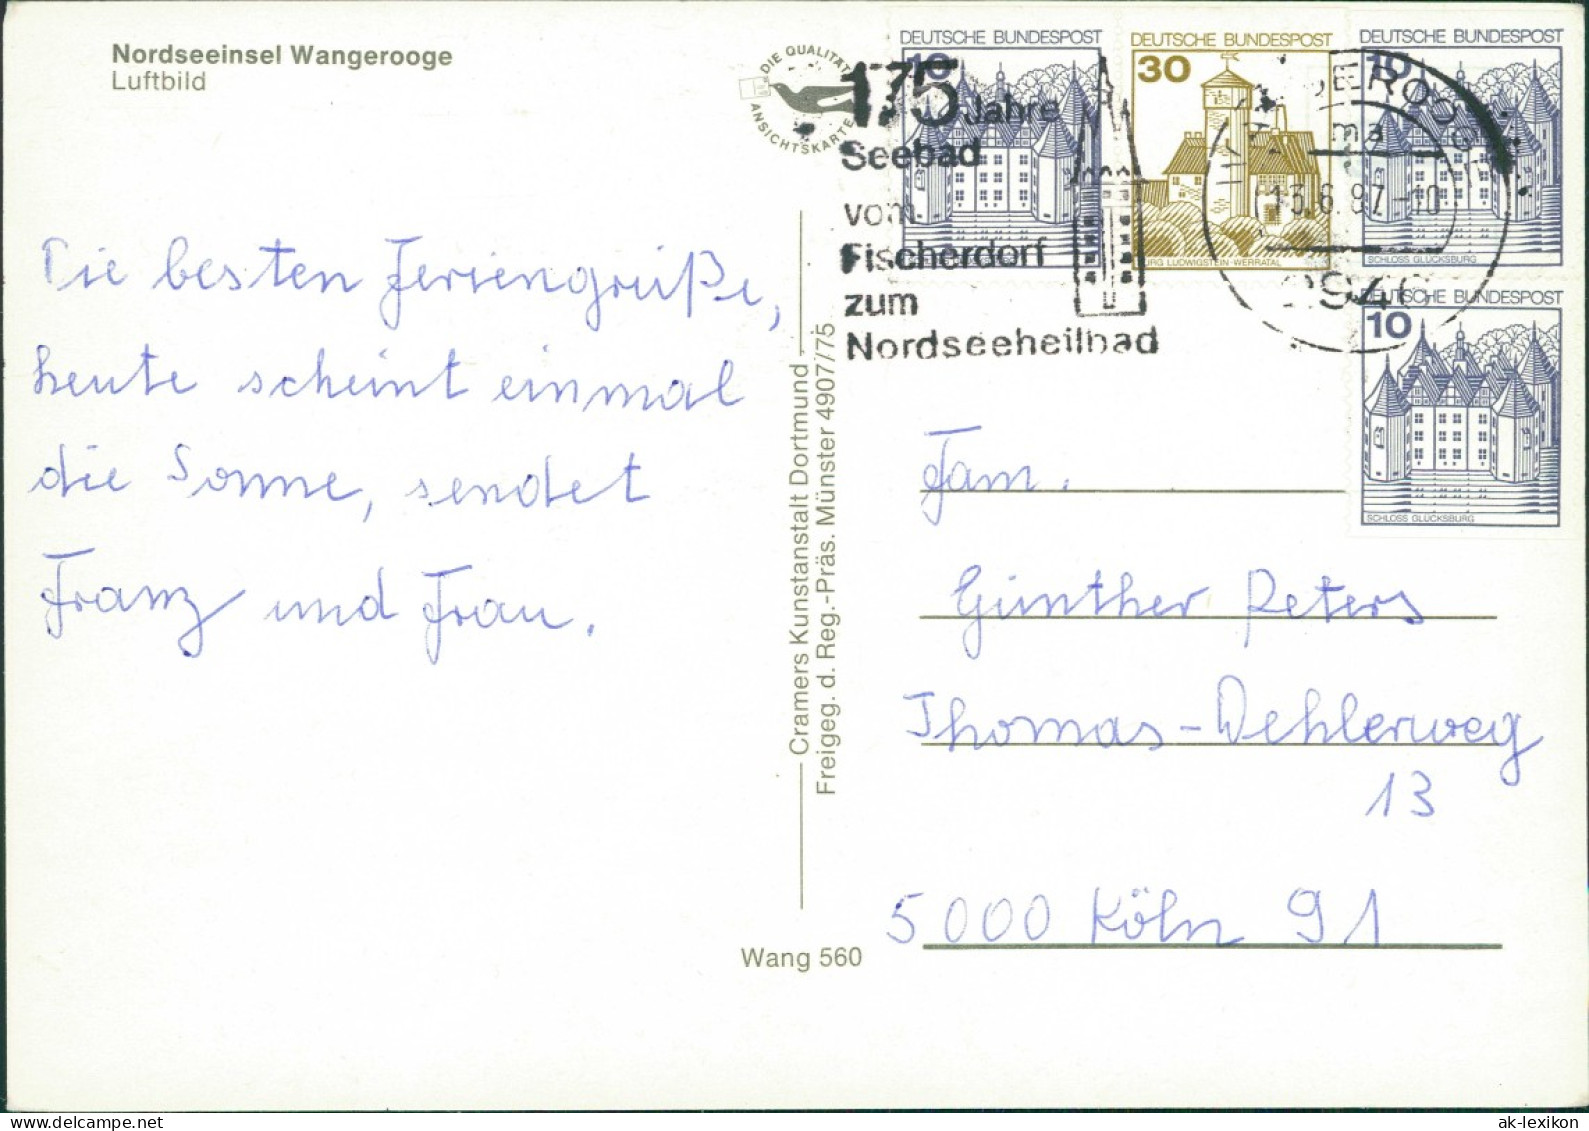 Nordseeinsel Wangerooge
Luftbild
DIE QUALITÄTS
ANSICHTSKARTE
DEUTSCHE BUNDESPOST
10
DEUTSCHE BUNDESPOST
30
BURG LUDWIGSTEIN-WERRATAL
DEUTSCHE BUNDESPOST
10
SCHLOSS GLÜCKSBURG
DEUTSCHE BUNDESPOST
10
SCHLOSS GLÜCKSBURG
175 Jahre
Seebad
vom
Fischerdorf
zum
Nordseeheilbad
WANGEROOGE
ma
13.6.87.-10
2946
Die besten Feriengrüße,
heute scheint einmal
die Sonne, sendet
Franz und Frau.
Cramers Kunstanstalt Dortmund
Freigeg. d. Reg.-Präs. Münster 4907/75
Fam.
Günther Peters
Thomas-Dehlerweg
13
5000 Köln 91
Wang 560
ak-lexikon.com